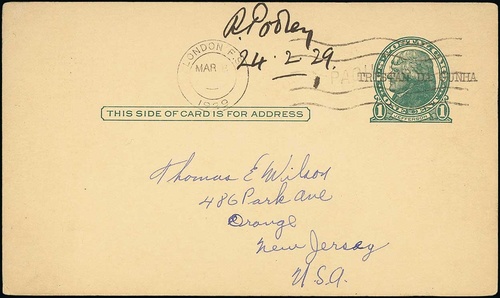 R. Pooley
24.2.29.
LONDON F.S.
MAR
1929
TRISTAN DA CUNHA
THIS SIDE OF CARD IS FOR ADDRESS
1 JEFFERSON 1
Thomas E Wilson
486 Park Ave
Orange
New Jersey
U.S.A.